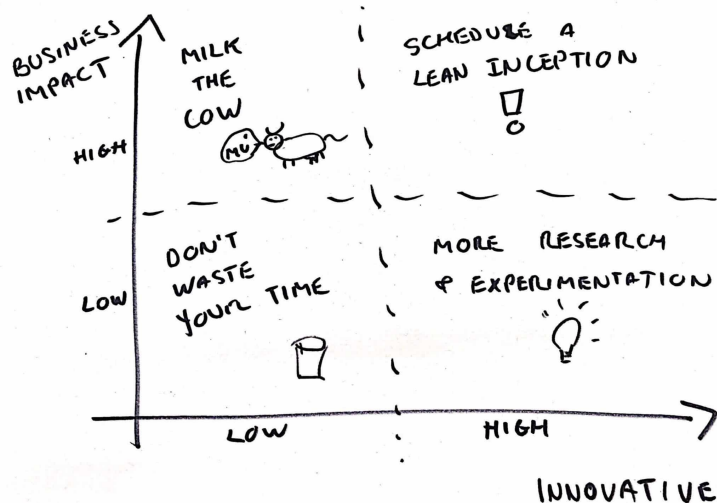 BUSINESS
IMPACT
MILK
THE
COW
MÚ
HIGH
SCHEDULE A
LEAN INCEPTION
DON'T
WASTE
YOUR TIME
LOW
MORE RESEARCH
& EXPERIMENTATION
LOW
HIGH
INNOVATIVE